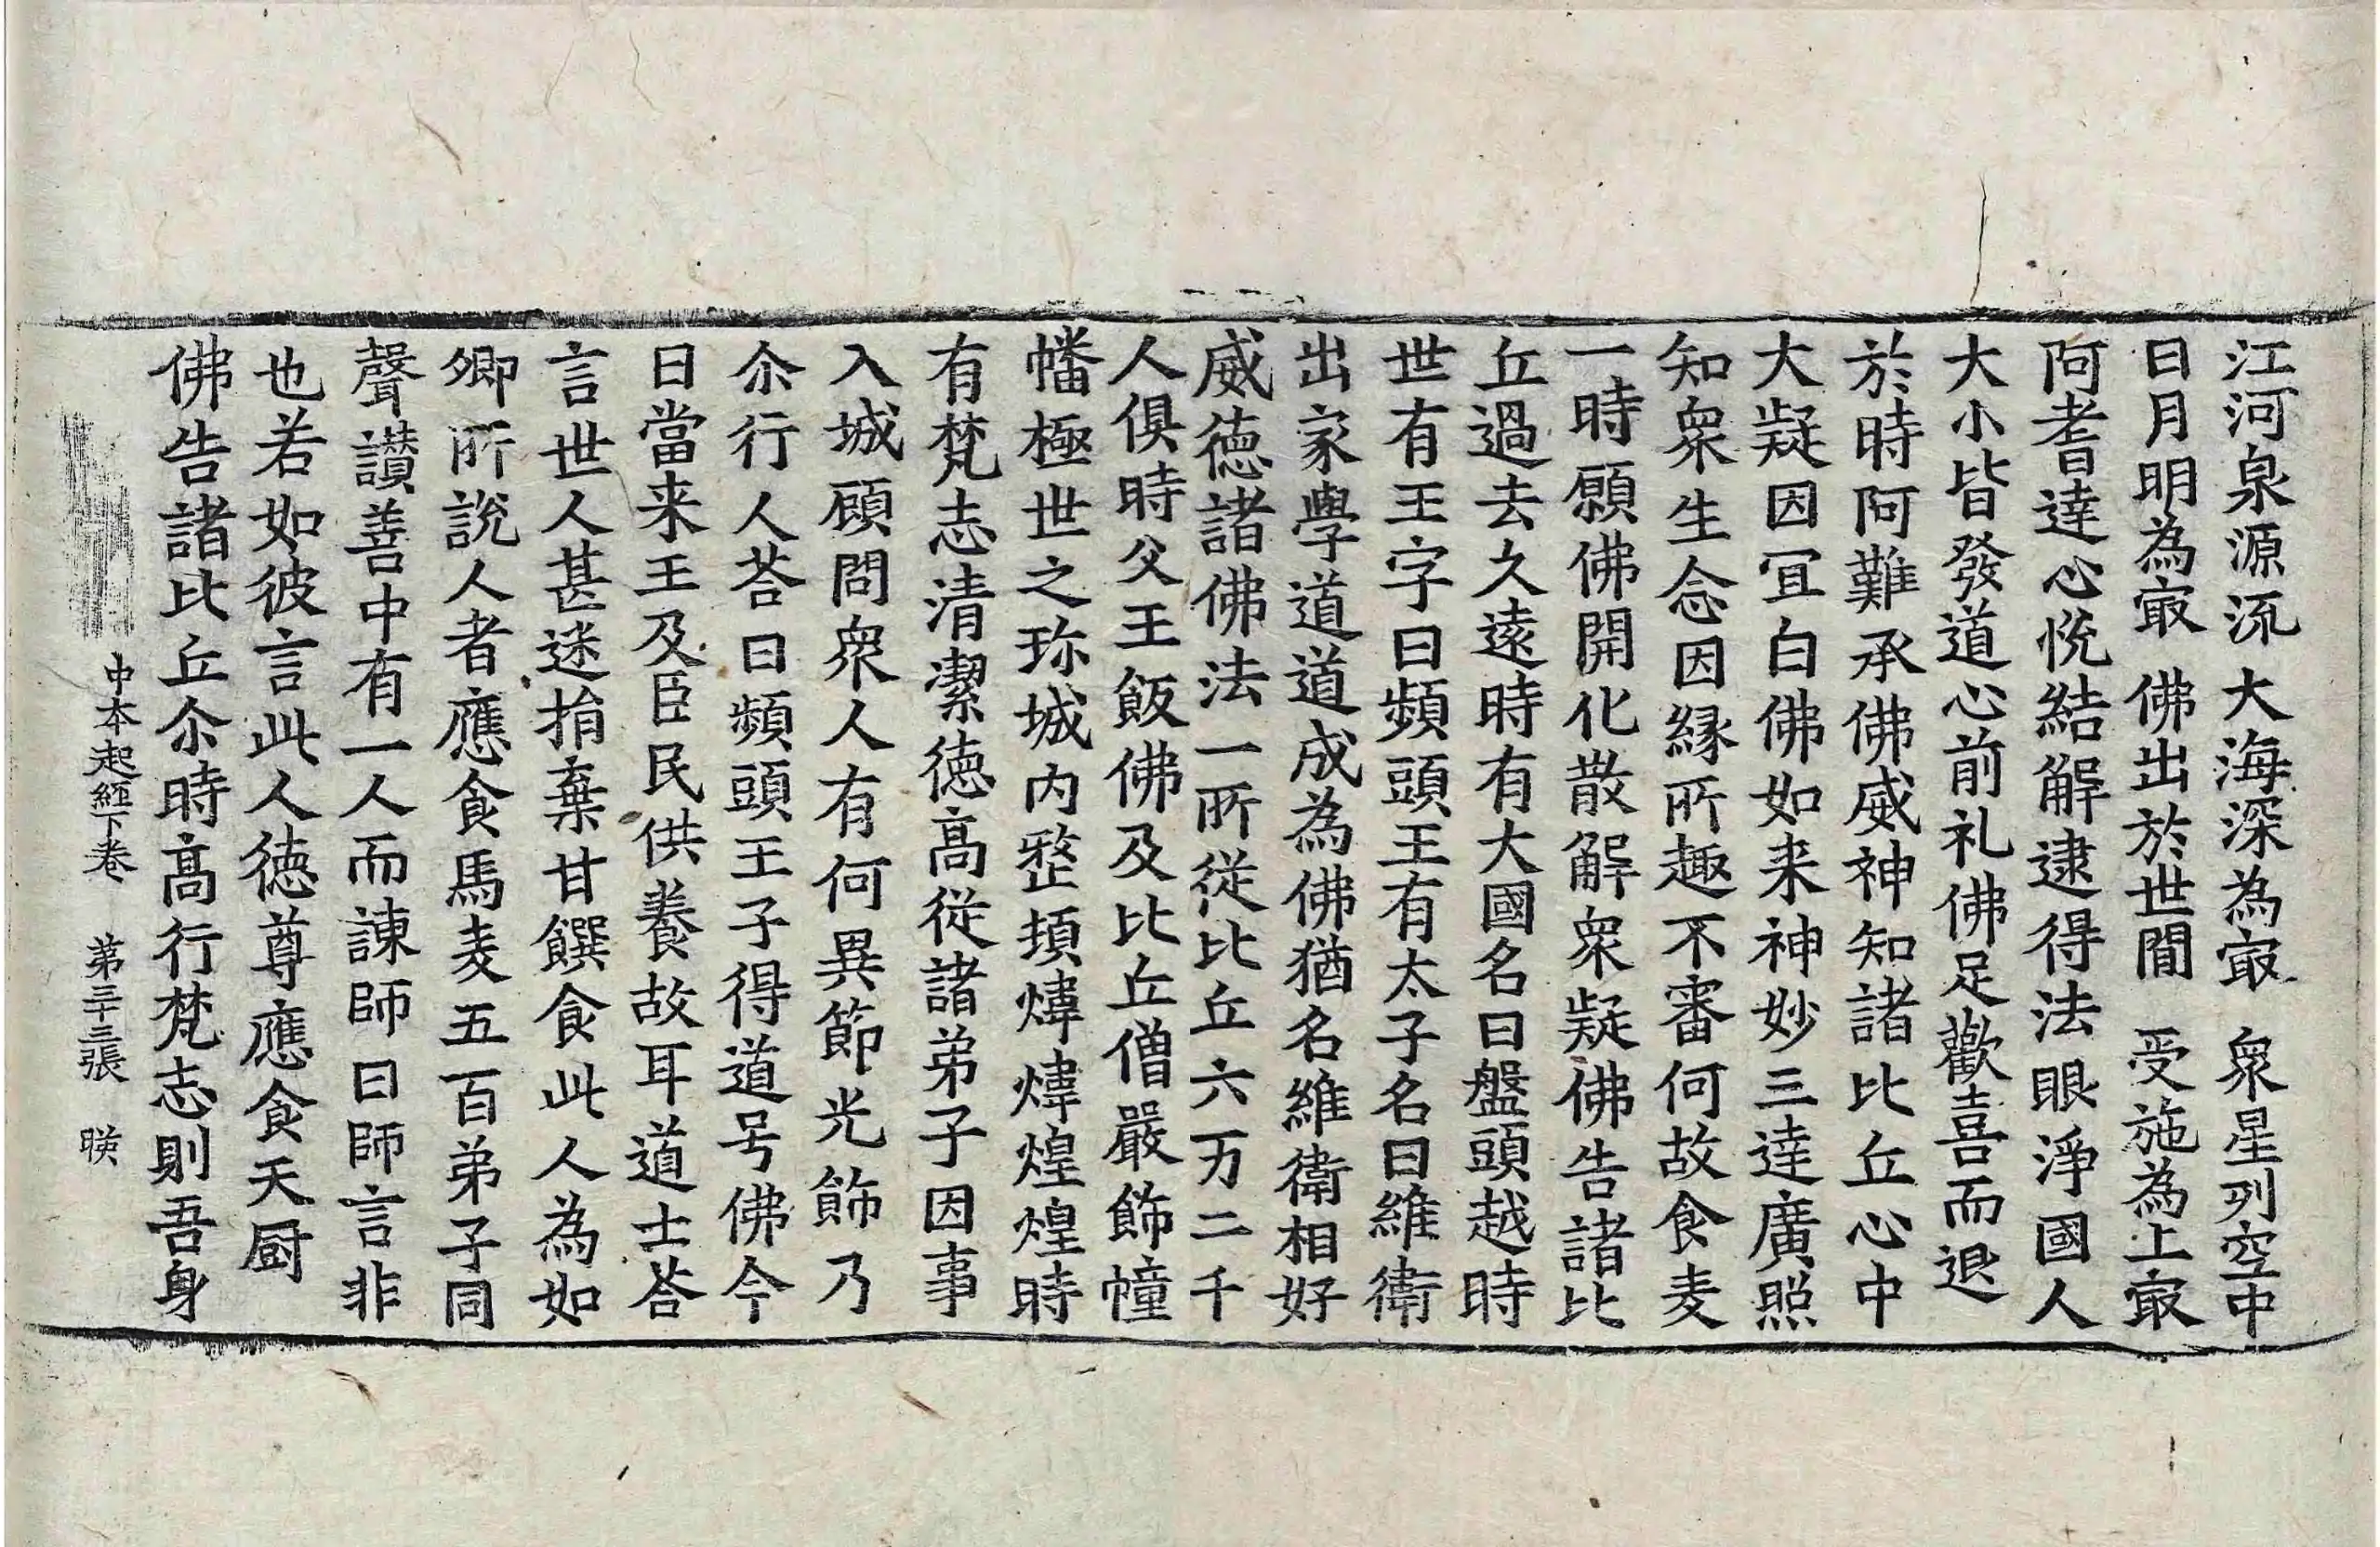 江河泉源流 大海深為㝡 衆星列空中
日月明為㝡 佛出於世間 受施為上㝡
阿耆達心恱結解逮得法眼淨國人
大小皆發道心前礼佛足歡喜而退
於時阿難承佛威神知諸比丘心中
大疑因冝白佛如来神妙三達廣照
知衆生念因緣所趣不審何故食麦
一時願佛開化散解衆疑佛告諸比
丘過去久遠時有大國名曰盤頭越時
世有王字曰頻頭王有太子名曰維衛
出家學道道成為佛猶名維衛相好
威徳諸佛法一所從比丘六万二千
人俱時父王飯佛及比丘僧嚴飾幢
幡極世之珎城内整頓煒煒煌煌時
有梵志清潔徳高從諸弟子因事
入城顧問衆人有何異節光飾乃
尒行人荅曰頻頭王子得道号佛今
日當来王及臣民供養故耳道士荅
言世人甚迷捐棄甘饌食此人為如
卿所說人者應食馬麦五百弟子同
聲讃善中有一人而諫師曰師言非
也若如彼言此人徳尊應食天厨
佛告諸比丘尒時高行梵志則吾身
中本起經下卷 第三十三張 暎